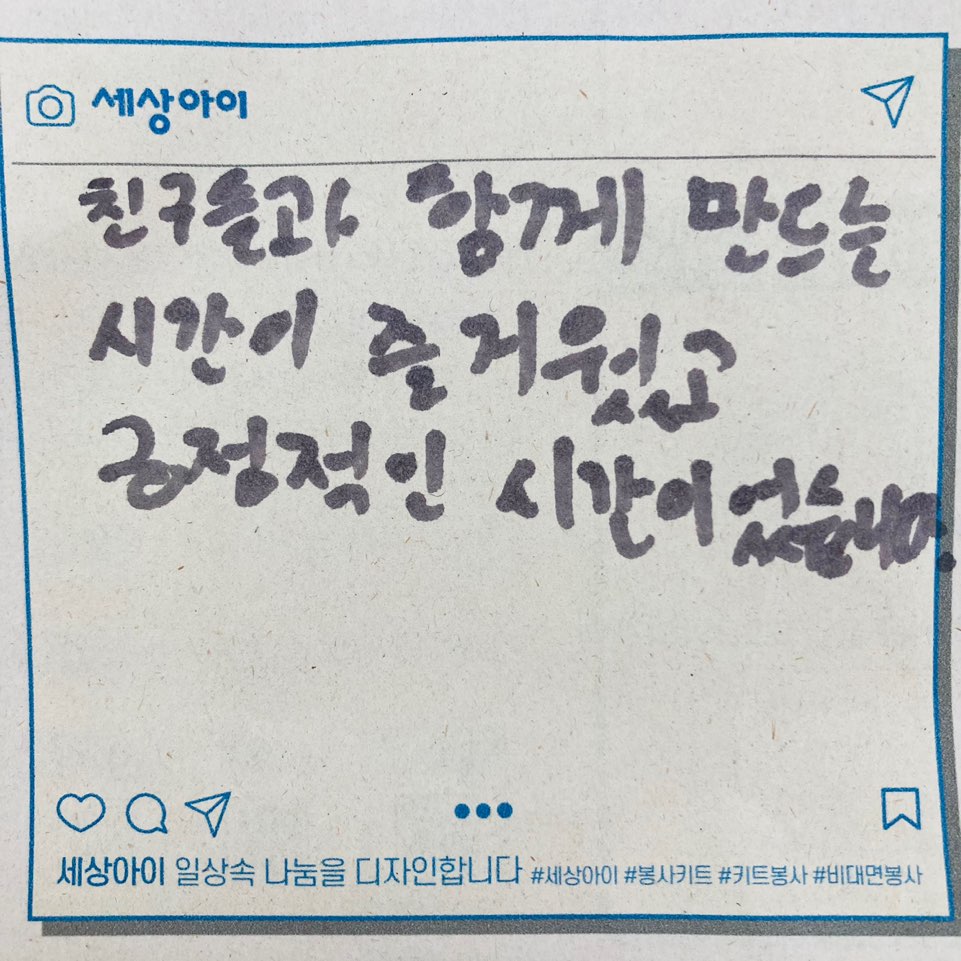 세상아이
친구들과 함께 만드는
시간이 즐거웠고
긍정적인 시간이었습니다.
세상아이 일상속 나눔을 디자인합니다 #세상아이 #봉사키트 #키트봉사 #비대면봉사